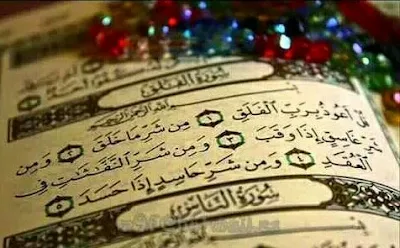 سُورَةُ الْفَلَقِ
بِسْمِ اللَّهِ الرَّحْمَٰنِ الرَّحِيمِ
قُلْ أَعُوذُ بِرَبِّ الْفَلَقِ ۝١ مِن شَرِّ مَا خَلَقَ ۝٢ وَمِن
شَرِّ غَاسِقٍ إِذَا وَقَبَ ۝٣ وَمِن شَرِّ النَّفَّاثَاتِ فِي
الْعُقَدِ ۝٤ وَمِن شَرِّ حَاسِدٍ إِذَا حَسَدَ ۝٥
سُورَةُ النَّاسِ